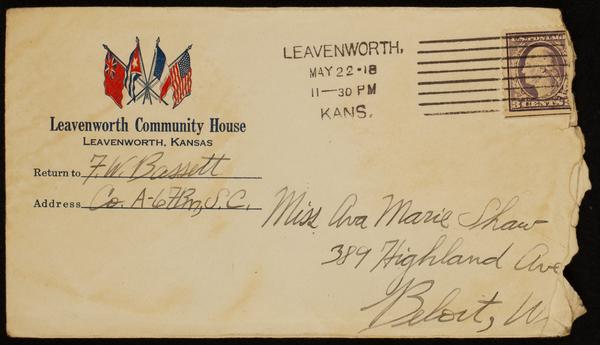 LEAVENWORTH,
MAY 22-18
11-30 PM
KANS.
3 CENTS 3
Leavenworth Community House
LEAVENWORTH, KANSAS
Return to F. W. Bassett
Address Co. A-6 F Bn, S.C.
Miss Ava Marie Shaw
389 Highland Ave
Beloit, W